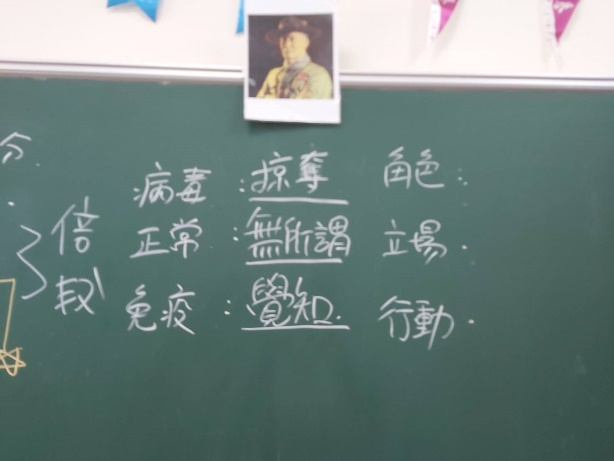 分.
病毒:掠奪 角色:
倍 正常:無所謂 立場.
免疫:覺知. 行動.